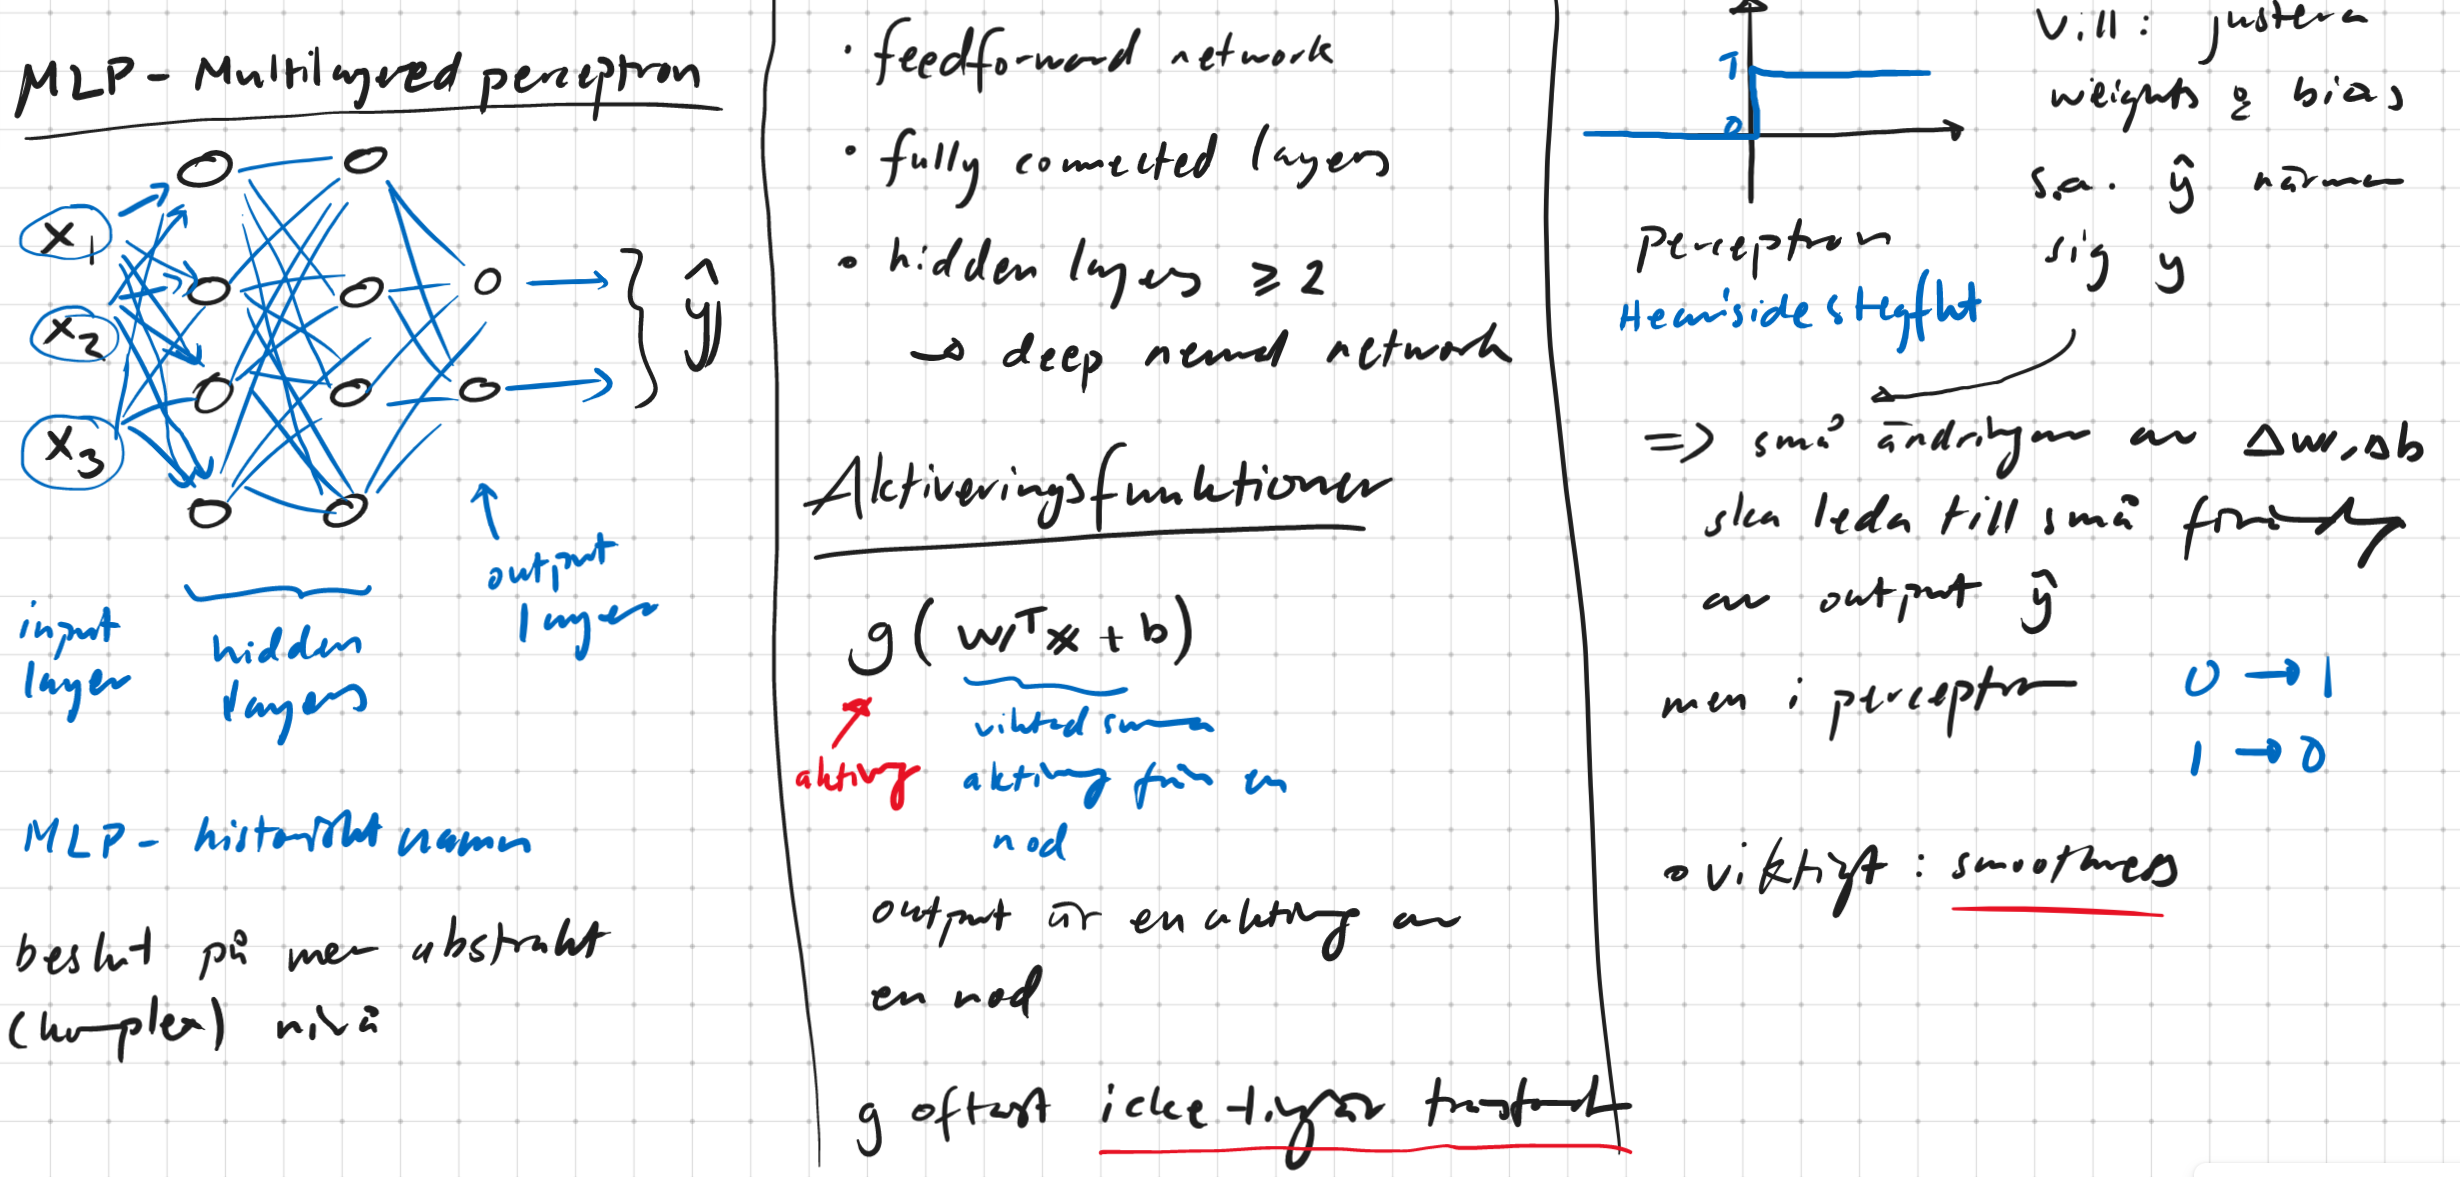 MLP - Multilayred perceptron
x1
x2
x3
ŷ
input
layer
hidden
layers
output
layer
MLP - historiskt namn
beslut på mer abstrakt
(komplex) nivå
• feedforward network
• fully connected layers
• hidden layers ≥ 2
→ deep neural network
Aktiveringsfunktioner
g(wᵀx + b)
viktad summa
aktivng
aktivng från en
nod
output är en aktivng av
en nod
g oftast icke-linjär transform
1
0
perceptron
Heaviside stegfkt
Vill: justera
weights & bias
s.a. ŷ närmar
sig y
=> små ändringar av Δw, Δb
ska leda till små förändrg
av output ŷ
men i perceptron
0 → 1
1 → 0
• viktigt: smoothness